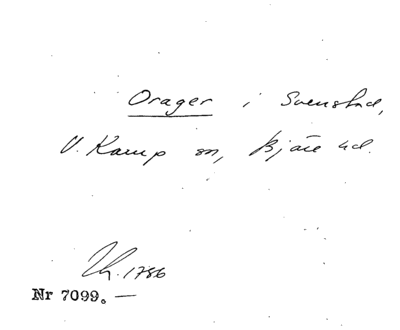 Orager i Svenstad,
V. Karup sn, Bjäre hd.
Nr 7099. —